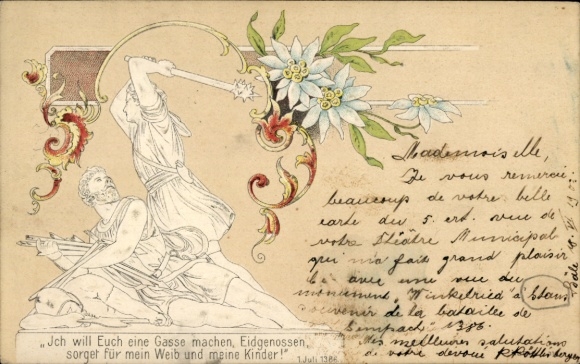 Mademoiselle,
Je vous remercie
beaucoup de votre belle
carte du 5. crt. vue de
votre Théâtre Municipal
qui m'a fait grand plaisir
avec une vue du
monument "Winkelried à Stans
souvenir de la bataille de
Sempach" 1386.
Mes meilleures salutations
de votre dévoué
Bâle
„Ich will Euch eine Gasse machen, Eidgenossen,
sorget für mein Weib und meine Kinder!"
1 Juli 1386